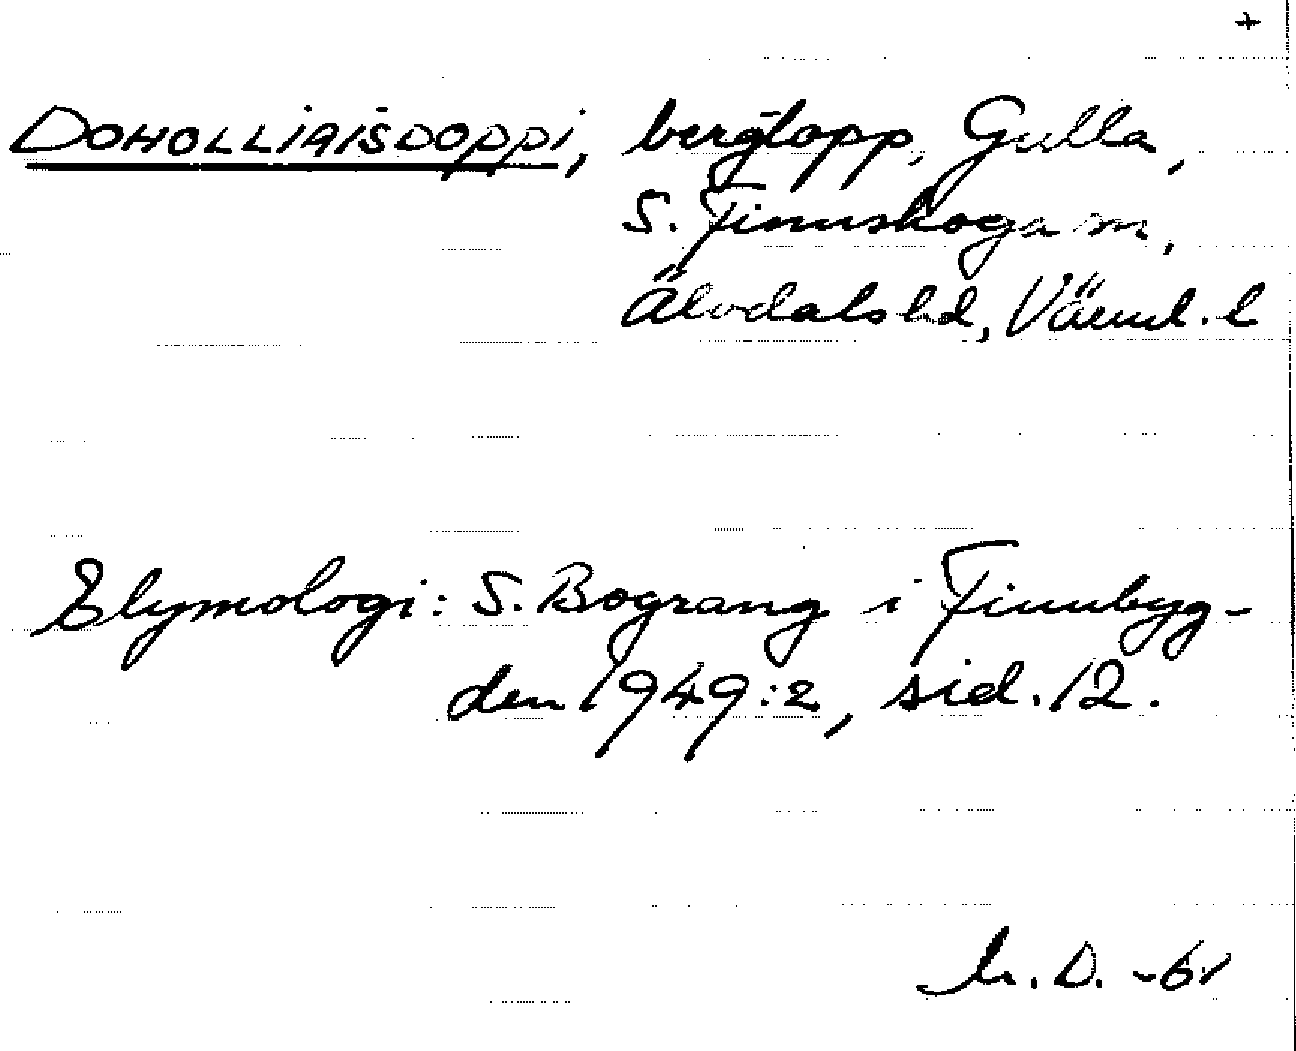 +
DOHOLLIAIŠDOPPI, bergtopp, Gulla,
S. Finnskoga sn,
Älvdals hd, Värml. l
Etymologi: S. Bograng i Finnbyg-
den 1949:2, sid. 12.
D.